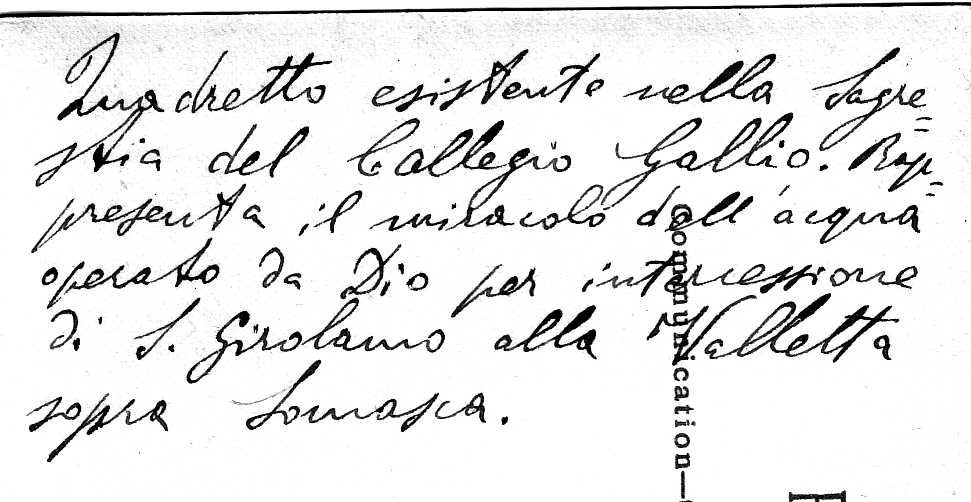 Quadretto esistente nella Sagre=
stia del Collegio Gallio. Rap=
presenta il miracolo dell'acqua
operato da Dio per intercessione
di S. Girolamo alla Valletta
sopra Somasca.
Communication—